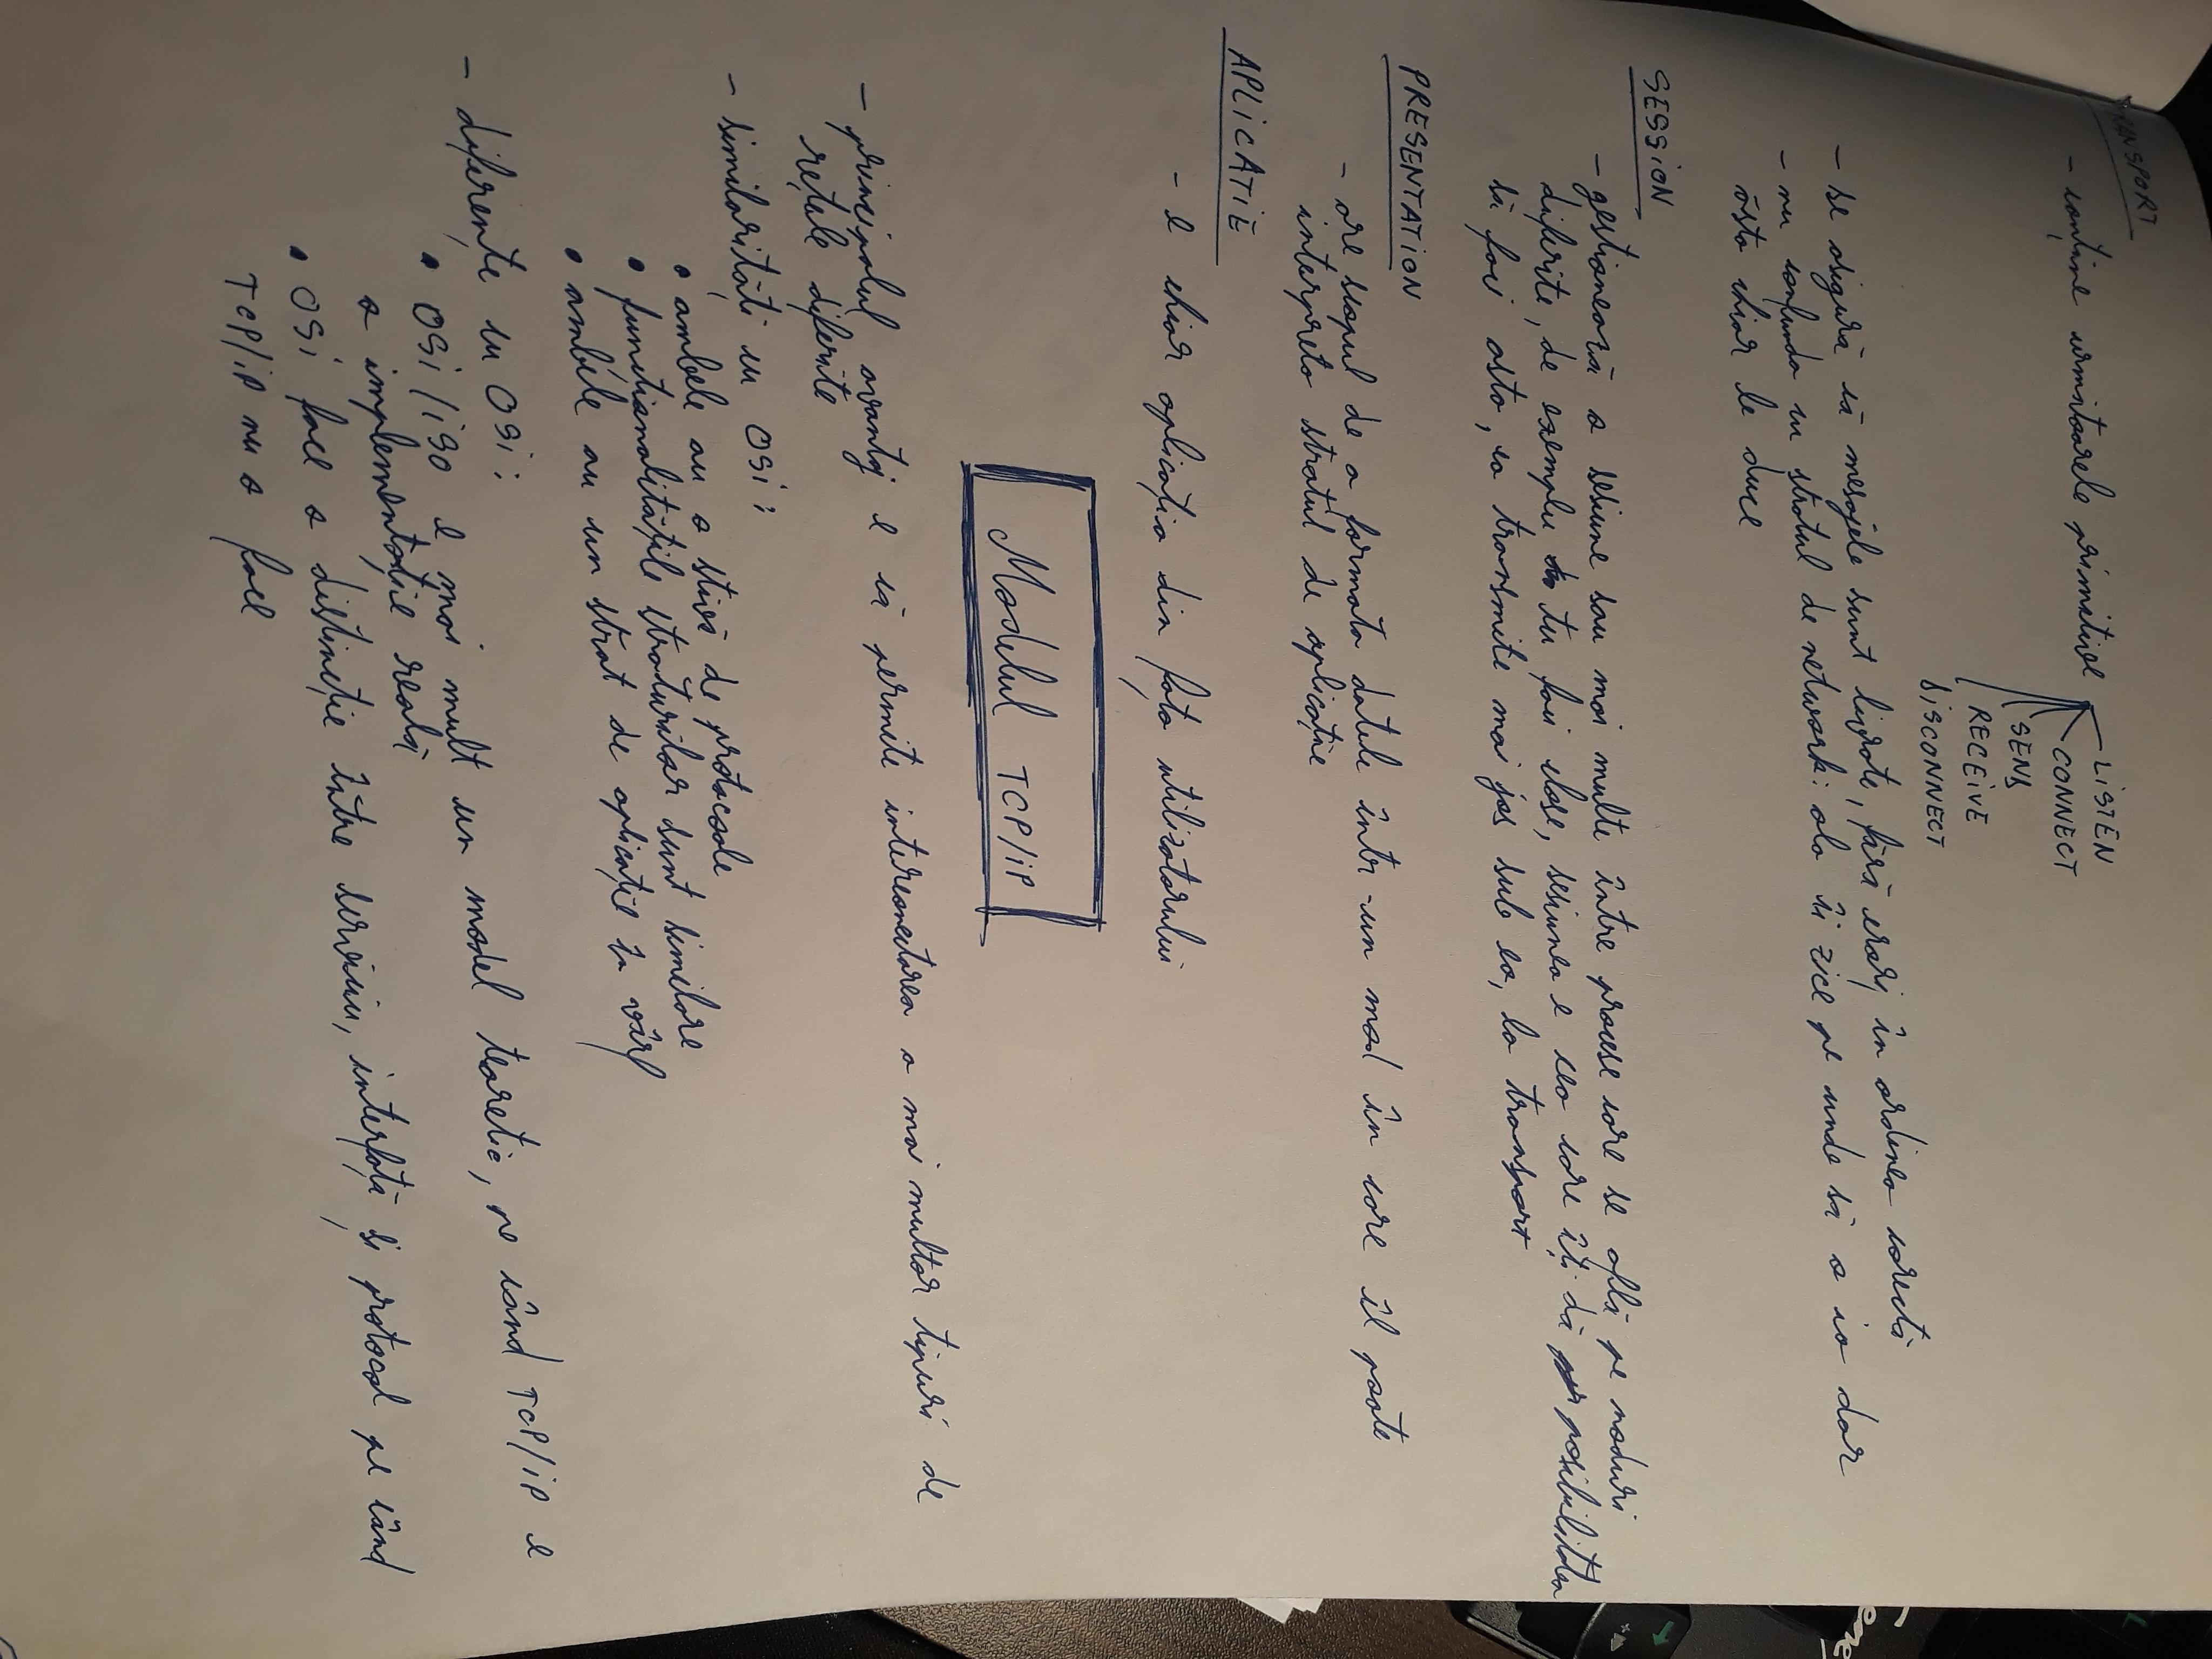 TRANSPORT
- conține următoarele primitive LISTEN
CONNECT
SEND
RECEIVE
DISCONNECT
- se asigură că mesajele sunt livrate, fără erori, în ordinea corectă
- nu confunda cu stratul de network: ala îi zice pe unde să o ia dar
ăsta chiar le duce
SESSION
- gestionează o sesiune sau mai multe între procese care se află pe noduri
diferite, de exemplu tu faci close, sesiunea e cea care îți dă posibilitatea
să faci asta, ea transmite mai jos sub ea, la transport
PRESENTATION
- are scopul de a formata datele într-un mod în care îl poate
interpreta stratul de aplicație
APLICATIE
- e chiar aplicația din fața utilizatorului
Modelul TCP/IP
- principalul avantaj e că permite interconectarea a mai multor tipuri de
rețele diferite
- similarități cu OSI:
• ambele au o stivă de protocoale
• funcționalitățile straturilor sunt similare
• ambele au un strat de aplicație în vârf
- diferențe cu OSI:
• OSI/ISO e mai mult un model teoretic, pe când TCP/IP e
o implementație reală
• OSI face o distincție între serviciu, interfață și protocol pe când
TCP/IP nu o face